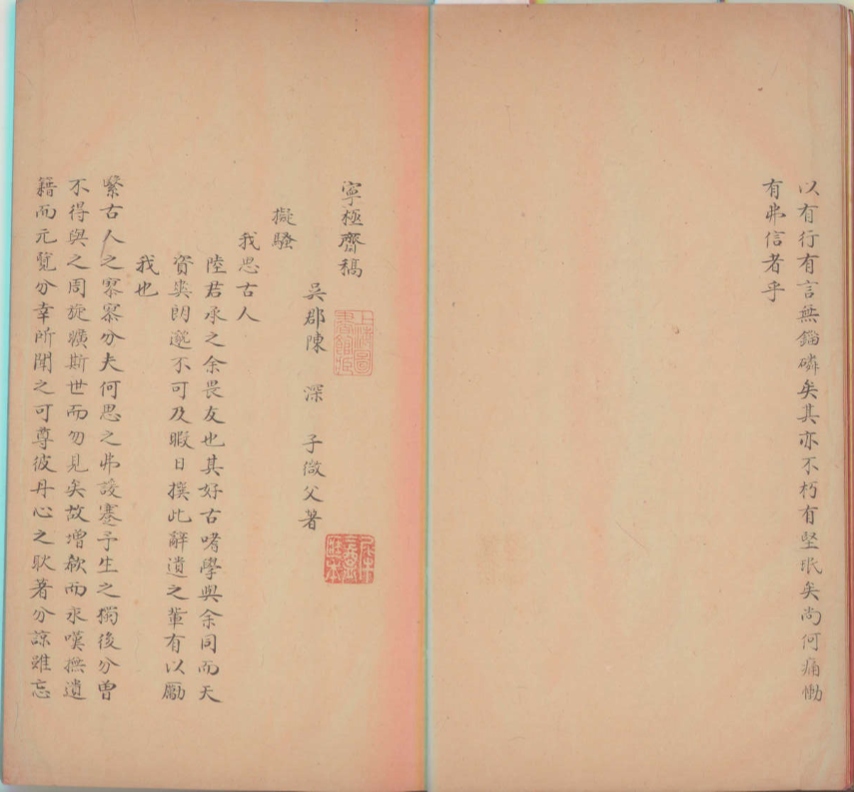 以有行有言無錙磷矣其亦不朽有堅珉矣尚何痛慟
有弗信者乎
寜極齋稿
吳郡陳 深 子微父著
擬騷
我思古人
陸君承之余畏友也其好古嗜學與余同而天
資爽朗邈不可及暇日撰此辭遺之葦有以勵
我也
繄古人之寥寥兮夫何思之弗諼蹇予生之獨後兮曽
不得與之周旋曠斯世而勿見矣故增欷而永嘆撫遺
籍而元覽兮幸所聞之可尊彼丹心之耿著兮諒雖忘
上海圖書館藏